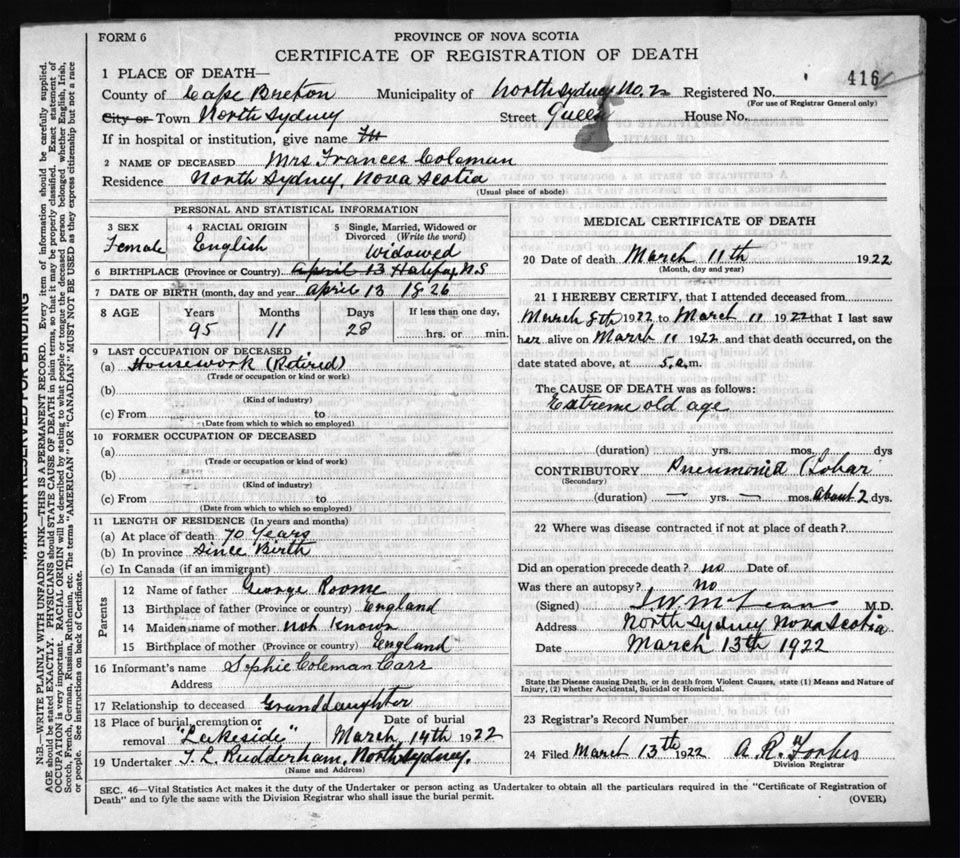 FORM 6
PROVINCE OF NOVA SCOTIA
CERTIFICATE OF REGISTRATION OF DEATH
416
1 PLACE OF DEATH—
County of Cape Breton Municipality of North Sydney No. 2 Registered No.
(For use of Registrar General only)
City or Town North Sydney Street Queen House No.
If in hospital or institution, give name
2 NAME OF DECEASED Mrs Frances Coleman
Residence North Sydney, Nova Scotia
(Usual place of abode)
PERSONAL AND STATISTICAL INFORMATION
3 SEX Female
4 RACIAL ORIGIN English
5 Single, Married, Widowed or Divorced (Write the word) Widowed
6 BIRTHPLACE (Province or Country) April 13 Halifax N.S
7 DATE OF BIRTH (month, day and year) April 13 1826
8 AGE Years Months Days If less than one day,
95 11 28 hrs. or min.
9 LAST OCCUPATION OF DECEASED
(a) Housework (Retired)
(Trade or occupation or kind or work)
(b)
(Kind of industry)
(c) From to
(Date from which to which so employed)
10 FORMER OCCUPATION OF DECEASED
(a)
(Trade or occupation or kind or work)
(b)
(Kind of industry)
(c) From to
(Date from which to which so employed)
11 LENGTH OF RESIDENCE (In years and months)
(a) At place of death 70 Years
(b) In province Since Birth
(c) In Canada (if an immigrant)
Parents
12 Name of father George Roome
13 Birthplace of father (Province or country) England
14 Maiden name of mother not known
15 Birthplace of mother (Province or country) England
16 Informant's name Sophie Coleman Carr
Address
17 Relationship to deceased Granddaughter
18 Place of burial, cremation or removal "Lakeside"
Date of burial March 14th 1922
19 Undertaker T. L. Rudderham, North Sydney.
(Name and Address)
MEDICAL CERTIFICATE OF DEATH
20 Date of death March 11th 1922
(Month, day and year)
21 I HEREBY CERTIFY, that I attended deceased from
March 8th 1922 to March 11 1922 that I last saw
her alive on March 11 1922 and that death occurred, on the
date stated above, at 5.a.m.
The CAUSE OF DEATH was as follows:
Extreme old age
(duration) yrs. mos. dys
CONTRIBUTORY Pneumonia Lobar
(Secondary)
(duration) — yrs. — mos. about 2 dys.
22 Where was disease contracted if not at place of death?
Did an operation precede death? no Date of
Was there an autopsy? No
(Signed) McLean M.D.
Address North Sydney Nova Scotia
Date March 13th 1922
State the Disease causing Death, or in death from Violent Causes, state (1) Means and Nature of
Injury, (2) whether Accidental, Suicidal or Homicidal.
23 Registrar's Record Number
24 Filed March 13th 1922 A. R. Forbes
Division Registrar
SEC. 46—Vital Statistics Act makes it the duty of the Undertaker or person acting as Undertaker to obtain all the particulars required in the "Certificate of Registration of
Death" and to fyle the same with the Division Registrar who shall issue the burial permit.
(OVER)
MARGIN RESERVED FOR BINDING
N.B.—WRITE PLAINLY WITH UNFADING INK—THIS IS A PERMANENT RECORD. Every item of information should be carefully supplied.
AGE should be stated EXACTLY. PHYSICIANS should STATE CAUSE OF DEATH in plain terms, so that it may be properly classified. Exact statement of
OCCUPATION is very important. RACIAL ORIGIN will be described by stating to what people or tongue the deceased person belonged whether English, Irish,
Scotch, French, German, Russian, Ruthenian, etc. The terms "AMERICAN" OR "CANADIAN" MUST NOT BE USED as they express citizenship but not a race
or people. See instructions on back of Certificate.